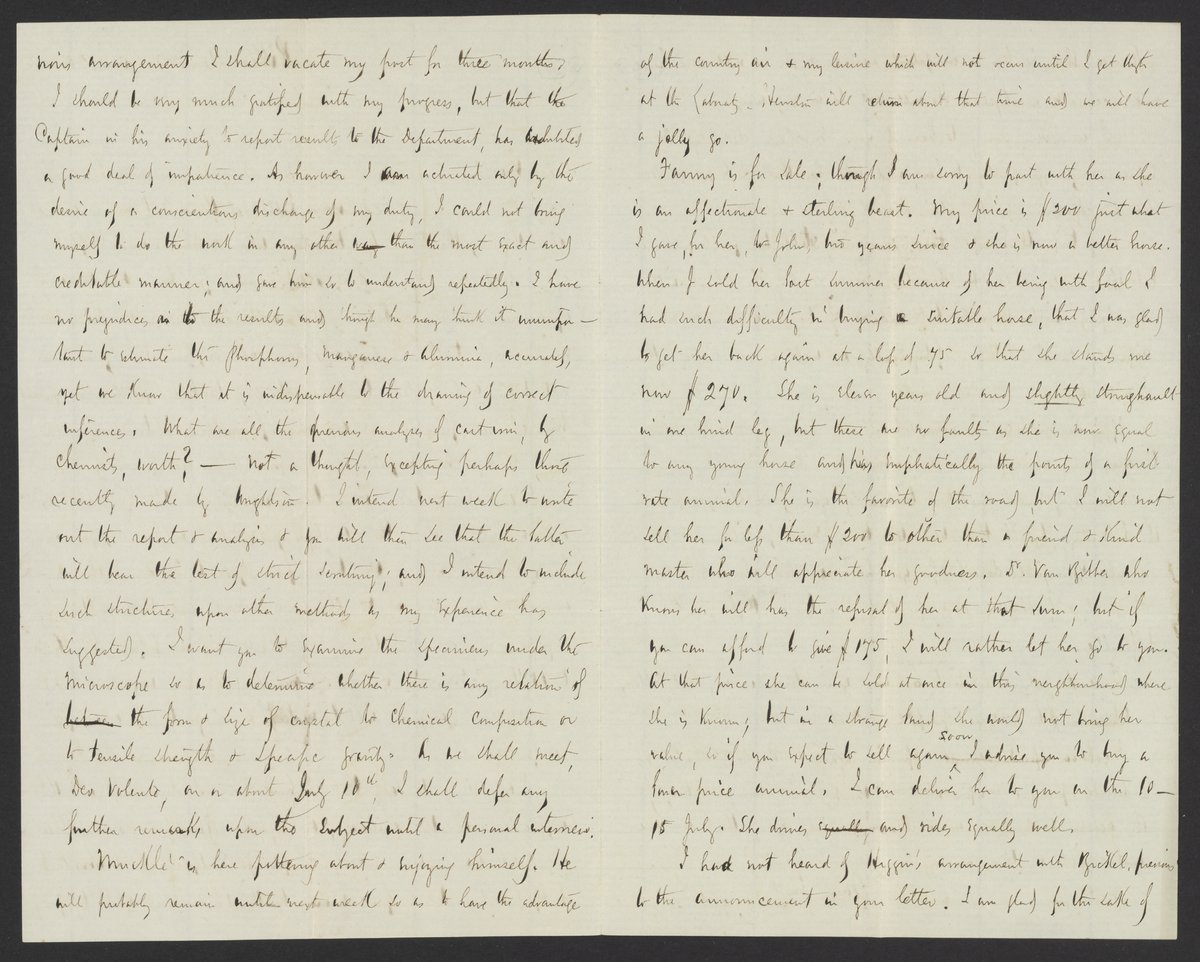 vious arrangement I shall vacate my post for three months.
I should be very much gratified with my progress, but that the
Captain in his anxiety to report results to the Department, has exhibited
a good deal of impatience. As however I am actuated only by the
desire of a conscientious discharge of my duty, I could not bring
myself to do the work in any other way than the most exact and
creditable manner; and gave him so to understand repeatedly. I have
no prejudices as to the results and though he may think it unimpor-
tant to estimate the Phosphorus, Manganese & Alumina, accurately,
yet we know that it is indispensable to the drawing of correct
inferences. What are all the previous analyses of cast iron, by
chemists, worth? — not a thought, excepting perhaps those
recently made by . I intend next week to write
out the report & analysis & you will then see that the latter
will bear the test of strict scrutiny; and I intend to include
such strictures upon other methods as my experience has
suggested. I want you to examine the specimens under the
microscope so as to determine whether there is any relation of
between the form & size of crystal to chemical composition or
to tensile strength & specific gravity. As we shall meet,
Deo Volente, on or about July 10th, I shall defer any
further remarks upon the subject until a personal interview.
Muckle is here pottering about & enjoying himself. He
will probably remain until next week so as to have the advantage
of the country air & my leisure which will not occur until I get thro
at the Laboraty. will return about that time and we will have
a jolly go.
Fanny is for sale; though I am sorry to part with her as she
is an affectionate & sterling beast. My price is $200 just what
I gave, for her, to John, two years since & she is now a better horse.
When I sold her last summer because of her being with foal I
had such difficulty in buying a suitable horse, that I was glad
to get her back again at a loss of 75 so that she stands me
now $270. She is eleven years old and slightly stringhault
in one hind leg, but these are no faults as she is now equal
to any young horse and has emphatically the points of a first
rate animal. She is the favorite of the road, but I will not
sell her for less than $200 to other than a friend & kind
master who will appreciate her goodness. Dr. Van Bibber who
knows her well has the refusal of her at that sum; but if
you can afford to give $175, I will rather let her go to you.
At that price she can be sold at once in this neighbourhood where
she is known; but in a strange land she would not bring her
value, so if you expect to sell again soon, I advise you to buy a
lower price animal. I can deliver her to you on the 10-
15 July. She drives equally and rides equally well.
I had not heard of Higgin's arrangement with Bickel, previous
to the announcement in your letter. I am glad for the sake of